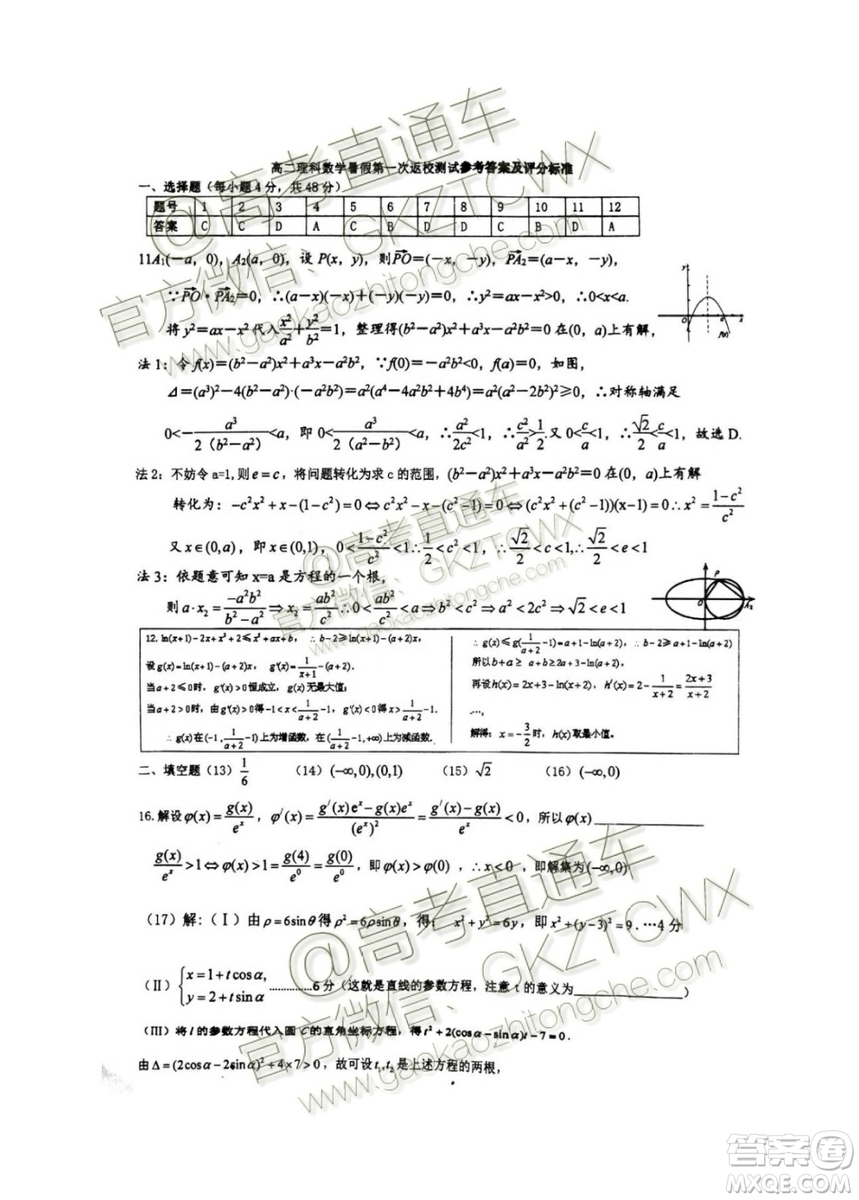 高二理科数学暑假第一次返校测试参考答案及评分标准
一、选择题（每小题4分，共48分）
题号 1 2 3 4 5 6 7 8 9 10 11 12
答案 C C D A C B D C B D A
11A₁(−a，0)，A₂(a，0)，设 P(x，y)，则PO→=(−x，−y)，PA₂→=(a−x，−y)，
∵PO→·PA₂→=0，∴(a−x)(−x)+(−y)(−y)=0，∴y²=ax−x²>0，∴0<x<a.
将 y²=ax−x² 代入x²/a²+y²/b²=1，整理得(b²−a²)x²+a³x−a²b²=0 在(0，a)上有解，
法 1：令 f(x)=(b²−a²)x²+a³x−a²b²，∵f(0)=−a²b²<0，f(a)=0，如图，
Δ=(a³)²−4(b²−a²)·(−a²b²)=a²(a⁴−4a²b²+4b⁴)=a²(a²−2b²)²≥0，∴对称轴满足
0<−a³/2（b²−a²）<a，即 0<a³/2（a²−b²）<a，∴a²/2c²<1，∴c²/a²>1/2.又 0<c/a<1，∴√2/2<c/a<1，故选 D.
法 2：不妨令 a=1,则 e=c，将问题转化为求 c 的范围，(b²−a²)x²+a³x−a²b²=0 在(0，a)上有解
转化为：−c²x²+x−(1−c²)=0⇔c²x²−x−(c²−1)=0⇔(c²x²+(c²−1))(x−1)=0∴x²=(1−c²)/c²
又 x∈(0,a)，即 x∈(0,1)，0<(1−c²)/c²<1∴1/2<c²<1，∴√2/2<c<1，∴√2/2<e<1
法 3：依题意可知 x=a 是方程的一个根，
则 a·x₂=−a²b²/(b²−a²)⇒x₂=ab²/c²∴0<ab²/c²<a⇒b²<c²⇒a²<2c²⇒√2<e<1
12. ln(x+1)−2x+x²+2≤x²+ax+b，∴b−2≥ln(x+1)−(a+2)x，
设g(x)=ln(x+1)−(a+2)x，g′(x)=1/(x+1)−(a+2).
当a+2≤0时，g′(x)>0恒成立，g(x)无最大值；
当a+2>0时，由g′(x)>0得−1<x<1/(a+2)−1，g′(x)<0得x>1/(a+2)−1.
∴g(x)在(−1,1/(a+2)−1)上为增函数，在(1/(a+2)−1,+∞)上为减函数.
∴g(x)≤g(1/(a+2)−1)=a+1−ln(a+2)，∴b−2≥a+1−ln(a+2)
所以b+a≥2a+3−ln(a+2)，
再设h(x)=2x+3−ln(x+2)，h′(x)=2−1/(x+2)=(2x+3)/(x+2)
…，
解得：x=−3/2时，h(x)取最小值。
二、填空题（13）1/6 （14）(−∞,0),(0,1) （15）√2 （16）(−∞,0)
16.解设φ(x)=g(x)/eˣ，φ′(x)=(g′(x)eˣ−g(x)eˣ)/(eˣ)²=(g′(x)−g(x))/eˣ<0，所以φ(x)
g(x)/eˣ>1⇔φ(x)>1=g(4)/e⁰=g(0)/e⁰，即φ(x)>φ(0)，∴x<0，即解集为(−∞,0)
（17）解:（Ⅰ）由ρ=6sinθ得ρ²=6ρsinθ，得：x²+y²=6y，即x²+(y−3)²=9.…4分
（Ⅱ）{x=1+tcosα, y=2+tsinα ……………6分（这就是直线的参数方程，注意 t 的意义为）
（Ⅲ）将 l 的参数方程代入圆 C 的直角坐标方程，得t²+2(cosα−sinα)t−7=0.
由Δ=(2cosα−2sinα)²+4×7>0，故可设t₁,t₂是上述方程的两根，
@高考直通车
官方微信：GKZTCWX
gaokaozhitongche.com
@高考直通车
官方微信：GKZTCWX
gaokaozhitongche.com
@高考直通车
官方微信：GKZTCWX
gaokaozhitongche.com
答案圈
MXQE.COM